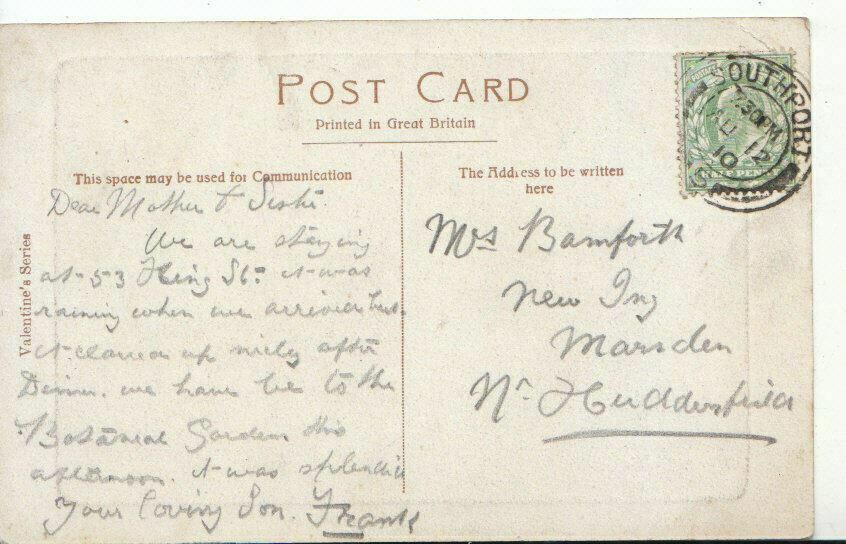 POST CARD
Printed in Great Britain
This space may be used for Communication
The Address to be written
here
Valentine's Series
SOUTHPORT
7.30PM
JU 12
10
HALF PENNY
Dear Mother & Sister.
We are staying
at 53 King St. it was
raining when we arrived but
it cleared up nicely after
Dinner. we have be to the
Botanical Gardens this
afternoon. it was splendid
Your loving Son. Frank
Mrs Bamforth
New Ing
Marsden
Nr Huddersfield